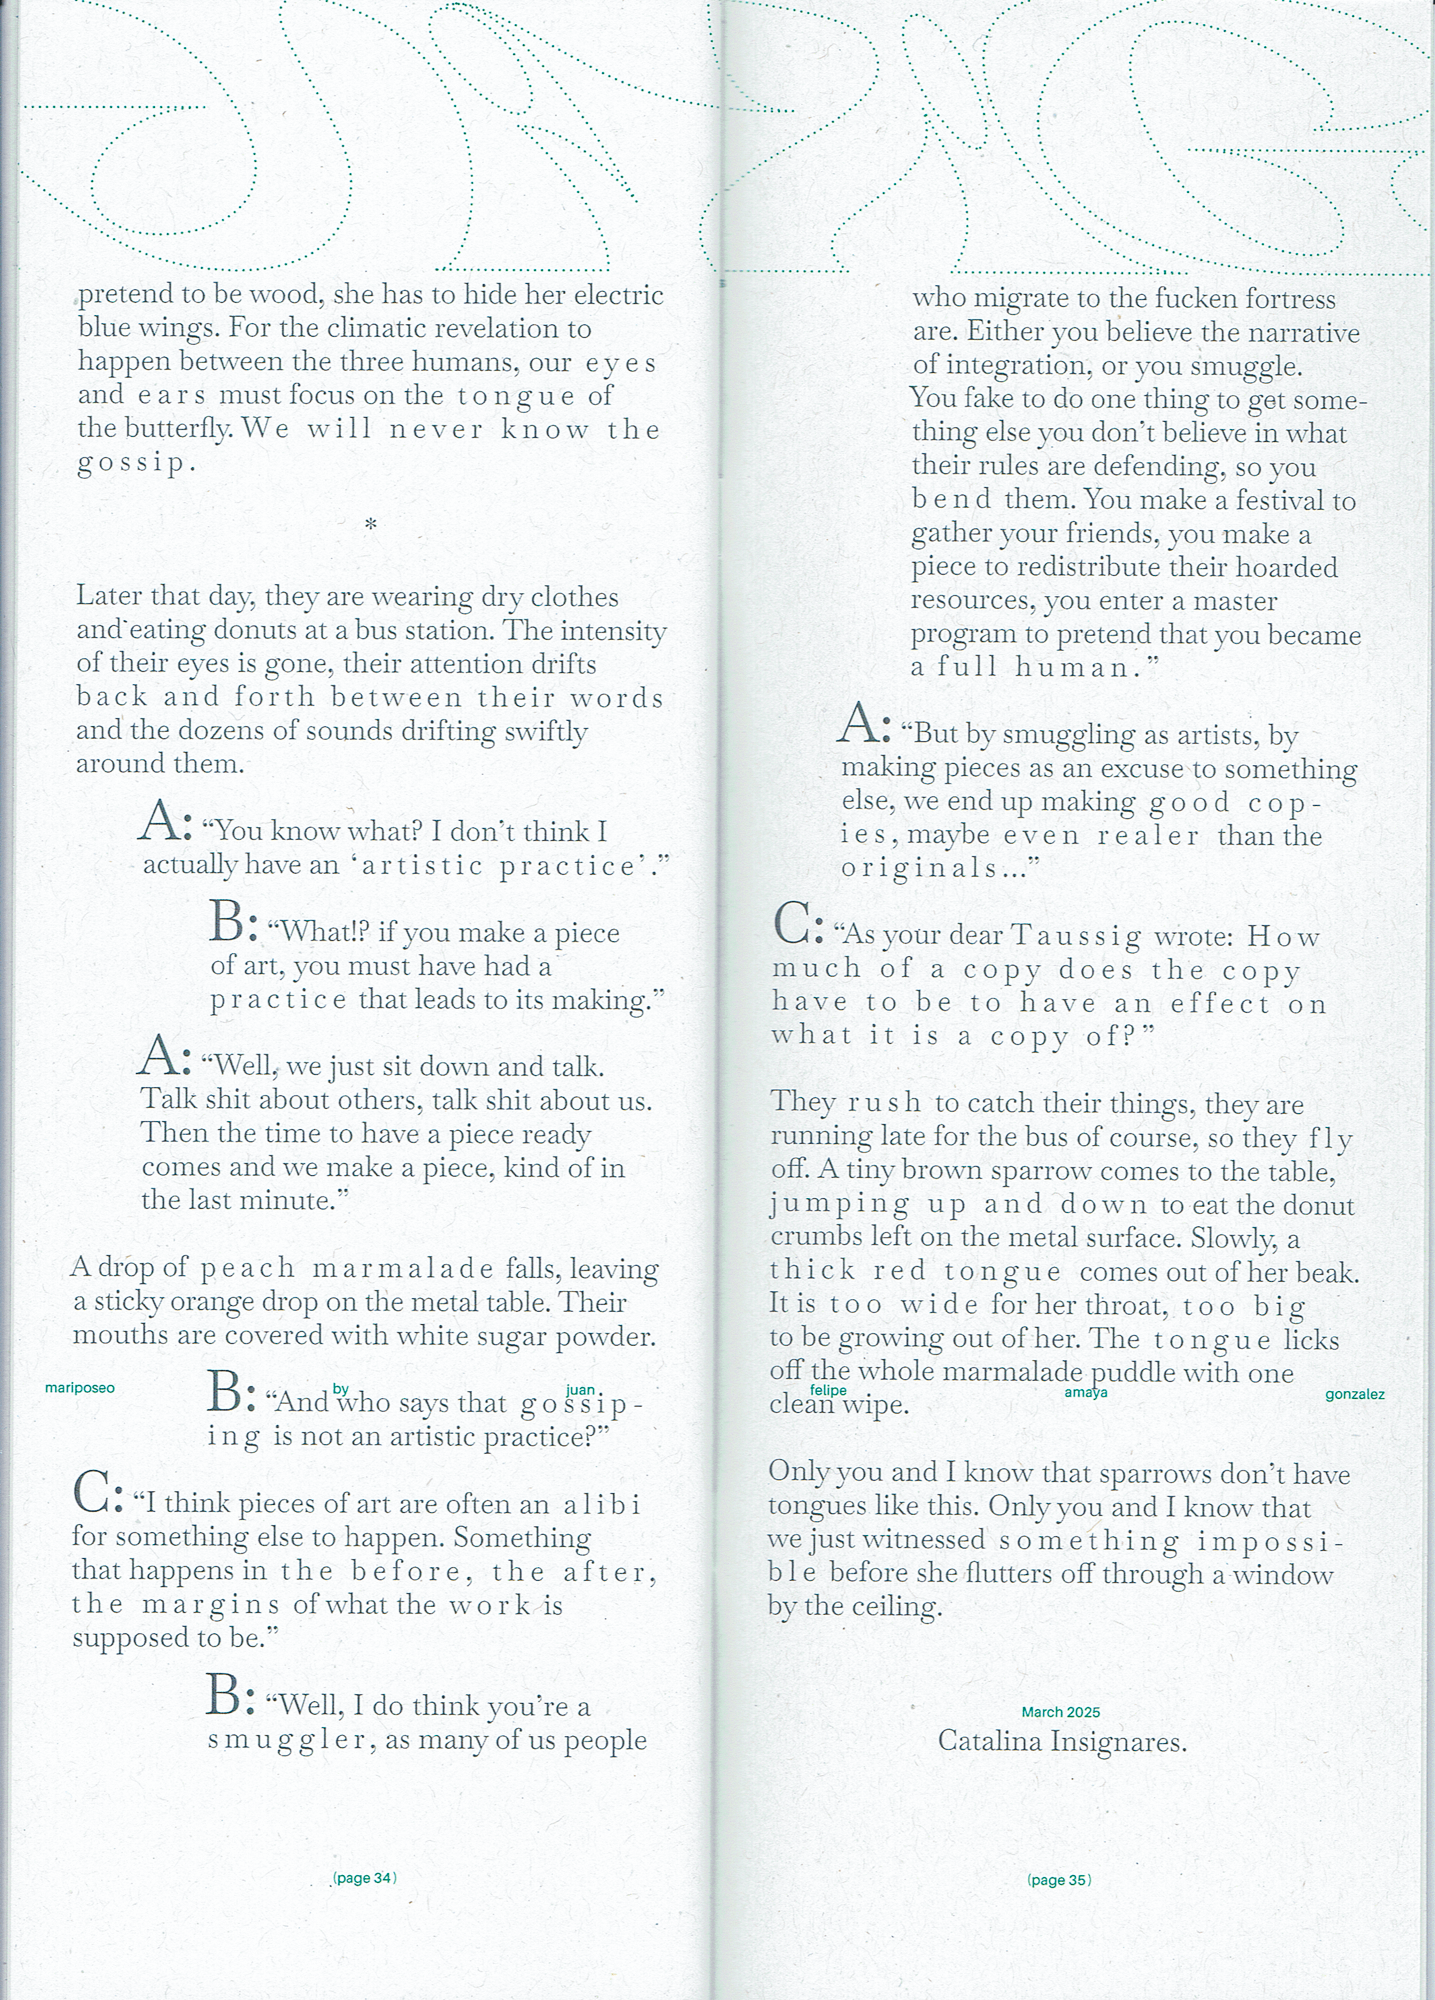 pretend to be wood, she has to hide her electric
blue wings. For the climatic revelation to
happen between the three humans, our eyes
and ears must focus on the tongue of
the butterfly. We will never know the
gossip.
*
Later that day, they are wearing dry clothes
and eating donuts at a bus station. The intensity
of their eyes is gone, their attention drifts
back and forth between their words
and the dozens of sounds drifting swiftly
around them.
A: “You know what? I don’t think I
actually have an ‘artistic practice’.”
B: “What!? if you make a piece
of art, you must have had a
practice that leads to its making.”
A: “Well, we just sit down and talk.
Talk shit about others, talk shit about us.
Then the time to have a piece ready
comes and we make a piece, kind of in
the last minute.”
A drop of peach marmalade falls, leaving
a sticky orange drop on the metal table. Their
mouths are covered with white sugar powder.
mariposeo by juan
B: “And who says that gossip-
ing is not an artistic practice?”
C: “I think pieces of art are often an alibi
for something else to happen. Something
that happens in the before, the after,
the margins of what the work is
supposed to be.”
B: “Well, I do think you’re a
smuggler, as many of us people
(page 34)
who migrate to the fucken fortress
are. Either you believe the narrative
of integration, or you smuggle.
You fake to do one thing to get some-
thing else you don’t believe in what
their rules are defending, so you
bend them. You make a festival to
gather your friends, you make a
piece to redistribute their hoarded
resources, you enter a master
program to pretend that you became
a full human.”
A: “But by smuggling as artists, by
making pieces as an excuse to something
else, we end up making good cop-
ies, maybe even realer than the
originals...”
C: “As your dear Taussig wrote: How
much of a copy does the copy
have to be to have an effect on
what it is a copy of?”
They rush to catch their things, they are
running late for the bus of course, so they fly
off. A tiny brown sparrow comes to the table,
jumping up and down to eat the donut
crumbs left on the metal surface. Slowly, a
thick red tongue comes out of her beak.
It is too wide for her throat, too big
to be growing out of her. The tongue licks
off the whole marmalade puddle with one
felipe amaya gonzalez
clean wipe.
Only you and I know that sparrows don’t have
tongues like this. Only you and I know that
we just witnessed something impossi-
ble before she flutters off through a window
by the ceiling.
March 2025
Catalina Insignares.
(page 35)